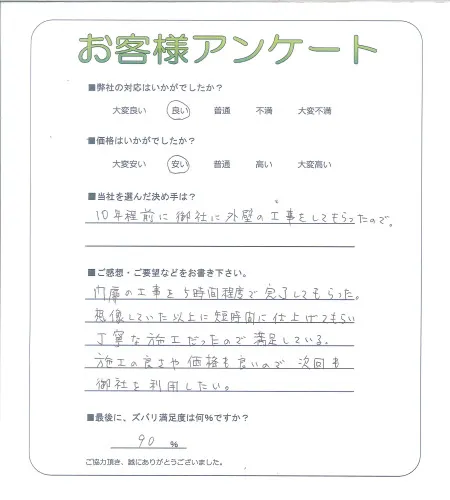 お客様アンケート
■弊社の対応はいかがでしたか？
大変良い 良い 普通 不満 大変不満
■価格はいかがでしたか？
大変安い 安い 普通 高い 大変高い
■当社を選んだ決め手は？
10年程前に御社に外壁の工事をしてもらったので。
■ご感想・ご要望などをお書き下さい。
内扉の工事を5時間程度で完了してもらった。
想像していた以上に短時間に仕上げてもらい
丁寧な施工だったので満足している。
施工の良さや価格も良いので次回も
御社を利用したい。
■最後に、ズバリ満足度は何%ですか？
90 %
ご協力頂き、誠にありがとうございました。